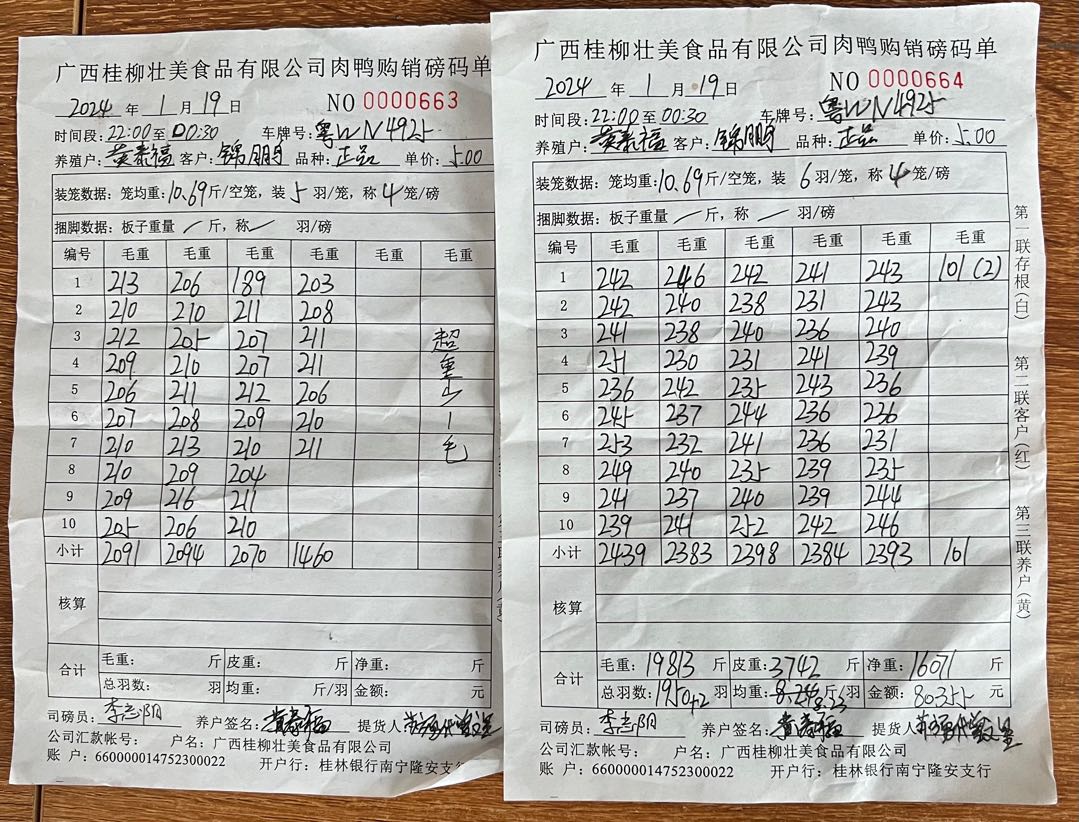 广西桂柳壮美食品有限公司肉鸭购销磅码单
2024 年 1 月 19 日 NO 0000663
时间段:22:00至00:30 车牌号:粤WN4925
养殖户:黄素福 客户:锦鹏 品种:正品 单价:5.00
装笼数据:笼均重:10.69斤/空笼,装 5 羽/笼,称 4 笼/磅
捆脚数据:板子重量 / 斤,称 / 羽/磅
编号 毛重 毛重 毛重 毛重 毛重 毛重
1 213 206 189 203
2 210 210 211 208
3 212 205 207 211 超
4 209 210 207 211 重
5 206 211 212 206 少
6 207 208 209 210 1
7 210 213 210 211 毛
8 210 209 204
9 209 216 211
10 205 206 210
小计 2091 2094 2070 1460
核算
合计 毛重: 斤 皮重: 斤 净重: 斤
总羽数: 羽 均重: 斤/羽 金额: 元
司磅员:李志阳 养户签名:黄素福 提货人:
公司汇款帐号: 户名:广西桂柳壮美食品有限公司
账 户:660000014752300022 开户行:桂林银行南宁隆安支行
广西桂柳壮美食品有限公司肉鸭购销磅码单
2024 年 1 月 19 日 NO 0000664
时间段:22:00至00:30 车牌号:粤WN4925
养殖户:黄素福 客户:锦鹏 品种:正品 单价:5.00
装笼数据:笼均重:10.69斤/空笼,装 6 羽/笼,称 4 笼/磅
捆脚数据:板子重量 / 斤,称 / 羽/磅
编号 毛重 毛重 毛重 毛重 毛重 毛重
1 242 246 242 241 243 101(2)
2 242 240 238 231 243
3 241 238 240 236 240
4 251 230 231 241 239
5 236 242 235 243 236
6 245 237 244 236 226
7 253 232 241 236 231
8 249 240 235 239 235
9 241 237 240 239 244
10 239 241 252 242 246
小计 2439 2383 2398 2384 2393 101
核算
合计 毛重:19813 斤 皮重:3742 斤 净重:16071 斤
总羽数:1950+2 羽 均重:8.24 8.23 斤/羽 金额:80355 元
司磅员:李志阳 养户签名:黄素福 提货人:
公司汇款帐号: 户名:广西桂柳壮美食品有限公司
账 户:660000014752300022 开户行:桂林银行南宁隆安支行
第一联存根(白) 第二联客户(红) 第三联养户(黄)